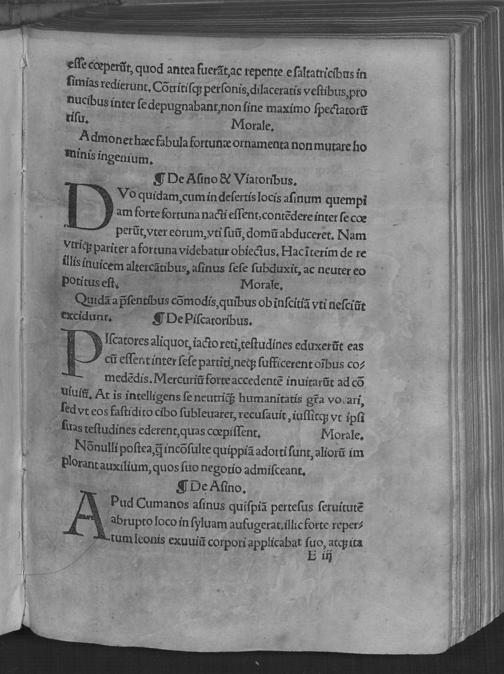 esse cœperũt, quod antea fuerãt, ac repente e saltatricibus in
simias redierunt. Cõtritisq; personis, dilaceratis vestibus, pro
nucibus inter se depugnabant, non sine maximo spectatorũ
risu. Morale.
Admonet hæc fabula fortunæ ornamenta non mutare ho
minis ingenium.
¶ De Asino & Viatoribus.
DVo quidam, cum in desertis locis asinum quempi
am forte fortuna nacti essent, contẽdere inter se cœ
perũt, vter eorum, vti suũ, domũ abduceret. Nam
vtriq; pariter a fortuna videbatur obiectus. Hac ĩterim de re
illis inuicem altercãtibus, asinus sese subduxit, ac neuter eo
potitus est. Morale.
Quidã a p̃sentibus cõmodis, quibus ob inscitiã vti nesciũt
excidunt. ¶ De Piscatoribus.
PIscatores aliquot, iacto reti, testudines eduxerũt eas
cũ essent inter sese partiti, neq; sufficerent oĩbus co-
medẽdis. Mercuriũ forte accedentẽ inuitarũt ad cõ
uiuiũ. At is intelligens se neutriq; humanitatis gr̃a vocari,
sed vt eos fastidito cibo subleuaret, recusauit, iussitq; vt ipsi
suas testudines ederent, quas cœpissent. Morale.
Nõnulli postea, q̃ incõsulte quippiã adorti sunt, aliorũ im
plorant auxilium, quos suo negotio admisceant.
¶ De Asino.
APud Cumanos asinus quispiã pertesus seruitutẽ
abrupto loco in syluam aufugerat. illic forte reper-
tum leonis exuuiũ corpori applicabat suo, atq; ita
E iij